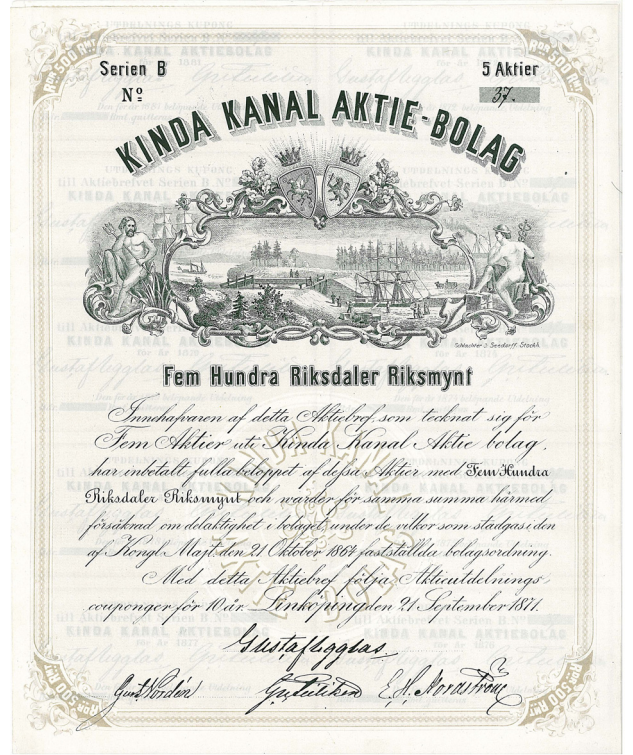 RDR 500 RMT
RDR 500 RMT
Serien B
5 Aktier
Nº
37.
KINDA KANAL AKTIE-BOLAG
Schlachter & Seedorff. Stockh.
Fem Hundra Riksdaler Riksmynt
Innehafvaren af detta Aktiebref, som tecknat sig för
Fem Aktier uti Kinda Kanal Aktie bolag,
har inbetalt fulla beloppet af dessa Aktier med Fem Hundra
Riksdaler Riksmynt och warder för samma summa härmed
försäkrad om delaktighet i bolaget, under de vilkor som stadgas i den
af Kongl. Majt den 21 Oktober 1864 fastställda bolagsordning.
Med detta Aktiebref följa Aktieutdelnings
couponger för 10 år. Linköping den 21 September 1871.
Gust. Nordén
E. H. Nordström
RDR 500 RMT
RDR 500 RMT